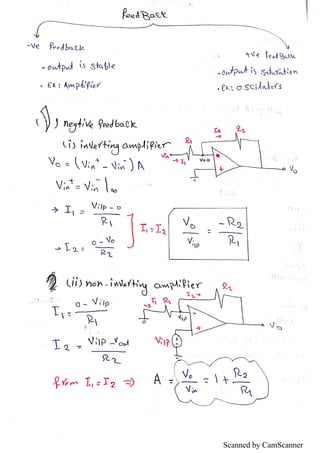 FeedBack
-ve Feedback
- output is stable
- EX : Amplifier
+ve feedBack
- output is saturation
- EX : oscillators
1) negtive feedback
(i) inverting amplifier
Vo = (Vin⁺ - Vin⁻) A
Vin⁺ = Vin⁻ |∞
→ I₁ = Vi/p - o / R₁
→ I₂ = o - Vo / R₂
I₁ = I₂
Vo / Vi/p = - R₂ / R₁
R₁ I₂ R₂
Vin → I₁ V=0 - + Vo
(ii) non-inverting amplifier
I₁ = o - Vi/p / R₁
I₂ = Vi/p - Vout / R₂
from I₁ = I₂ ⇒ A = Vo / Vin = 1 + R₂ / R₁
I₁ R₁ I₂ R₂
Vi/p - + Vo
Vi/p
Scanned by CamScanner